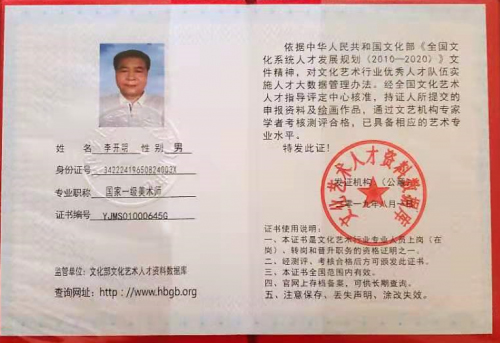 姓名 李开明 性别 男
身份证号
专业职称 国家一级美术师
证书编号 YJMS01000645G
监管单位：文化部文化艺术人才资料数据库
查询网址：http://www.hbgb.org
依据中华人民共和国文化部《全国文
化系统人才发展规划（2010—2020）》文
件精神，对文化艺术行业优秀人才队伍实
施人才大数据管理办法。经全国文化艺术
人才指导评定中心核准，持证人所提交的
申报资料及绘画作品，通过文艺机构专家
学者考核测评合格，已具备相应的艺术专
业水平。
特发此证！
文化艺术人才资料数据库
发证机构（公章）
二〇一九年八月一日
证书使用说明：
一、本证书是文化艺术行业专业人员上岗（在
岗），转岗和晋升职务的资格证明之一。
二、经测评、考核合格后方可颁发此证书。
三、本证书全国范围内有效。
四、官网上存档备案，可供长期查询。
五、注意保存、丢失声明、涂改失效。